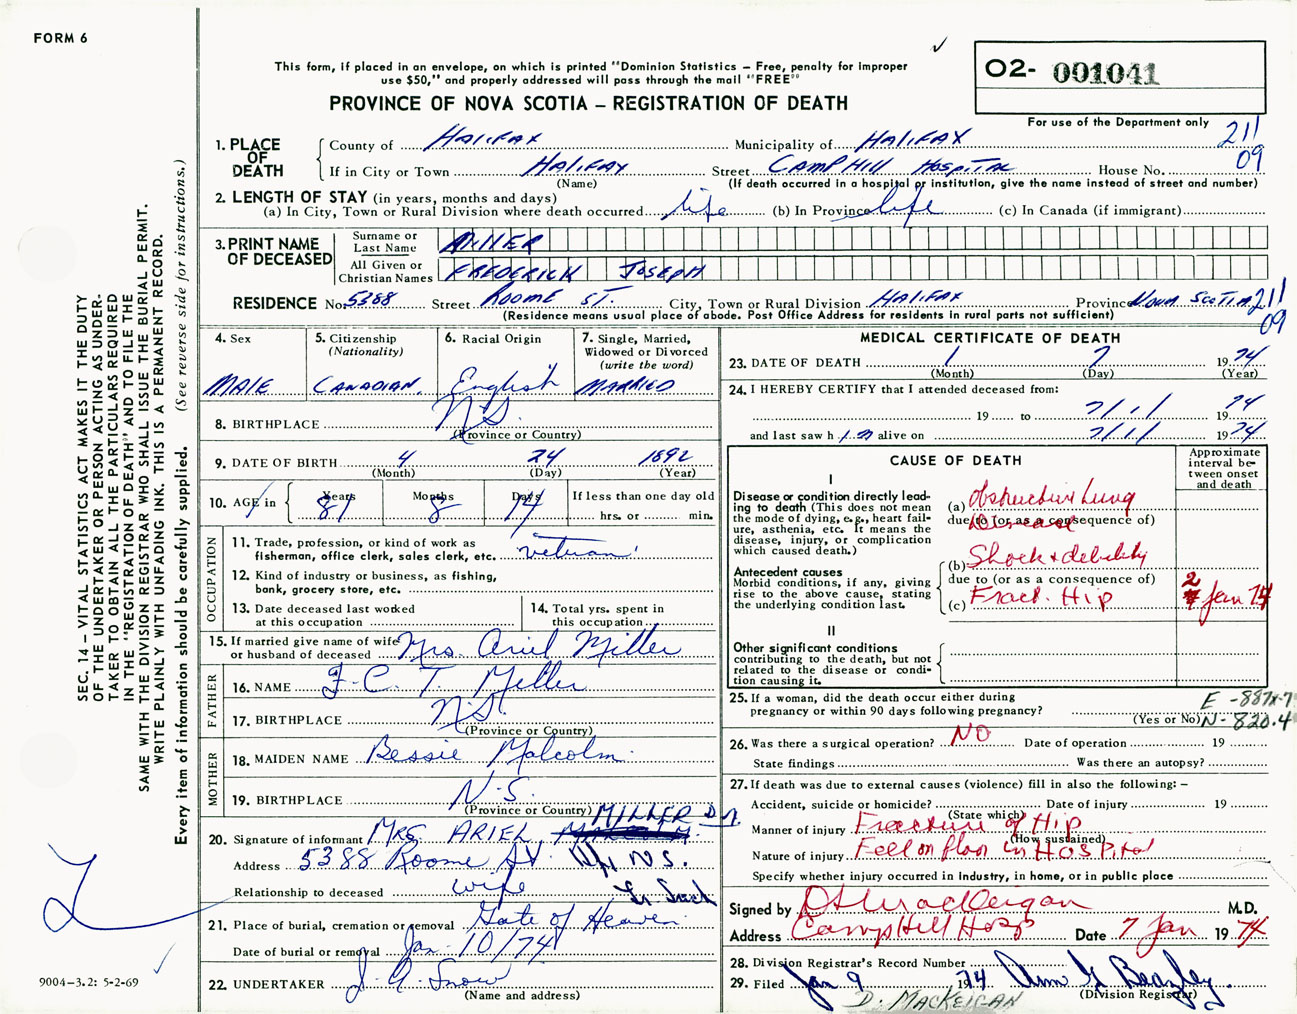 FORM 6
This form, if placed in an envelope, on which is printed "Dominion Statistics – Free, penalty for improper
use $50," and properly addressed will pass through the mail "FREE"
PROVINCE OF NOVA SCOTIA – REGISTRATION OF DEATH
O2- 001041
For use of the Department only
211
09
1. PLACE OF DEATH
County of HALIFAX Municipality of HALIFAX
If in City or Town HALIFAX Street CAMP HILL HOSPITAL House No.
(Name) (If death occurred in a hospital or institution, give the name instead of street and number)
2. LENGTH OF STAY (in years, months and days)
(a) In City, Town or Rural Division where death occurred life (b) In Province life (c) In Canada (if immigrant)
3. PRINT NAME OF DECEASED
Surname or Last Name MILLER
All Given or Christian Names FREDERICK JOSEPH
RESIDENCE No. 5388 Street ROOME ST. City, Town or Rural Division HALIFAX Province NOVA SCOTIA 211
09
(Residence means usual place of abode. Post Office Address for residents in rural parts not sufficient)
4. Sex
MALE
5. Citizenship
(Nationality)
CANADIAN.
6. Racial Origin
English
7. Single, Married,
Widowed or Divorced
(write the word)
MARRIED
8. BIRTHPLACE N.S.
(Province or Country)
9. DATE OF BIRTH 4 24 1892
(Month) (Day) (Year)
10. AGE in Years 81 Months 8 Days 14 If less than one day old
hrs. or min.
OCCUPATION
11. Trade, profession, or kind of work as
fisherman, office clerk, sales clerk, etc. veteran
12. Kind of industry or business, as fishing,
bank, grocery store, etc.
13. Date deceased last worked
at this occupation
14. Total yrs. spent in
this occupation
15. If married give name of wife
or husband of deceased Mrs. Ariel Miller
FATHER
16. NAME F. C. T. Miller
17. BIRTHPLACE N.S.
(Province or Country)
MOTHER
18. MAIDEN NAME Bessie Malcolm
19. BIRTHPLACE N.S.
(Province or Country)
20. Signature of informant MRS ARIEL MILLER
Address 5388 Roome St. N.S.
Relationship to deceased wife
21. Place of burial, cremation or removal Gate of Heaven
Date of burial or removal Jan. 10/74
22. UNDERTAKER J. A. Snow
(Name and address)
MEDICAL CERTIFICATE OF DEATH
23. DATE OF DEATH 1 7 1974
(Month) (Day) (Year)
24. I HEREBY CERTIFY that I attended deceased from:
19 to 7/1/ 1974
and last saw him alive on 7/1/ 1974
CAUSE OF DEATH
Approximate
interval be-
tween onset
and death
I
Disease or condition directly lead-
ing to death (This does not mean
the mode of dying, e.g., heart fail-
ure, asthenia, etc. It means the
disease, injury, or complication
which caused death.)
(a) Obstructive Lung
Disease
due to (or as a consequence of)
Antecedent causes
Morbid conditions, if any, giving
rise to the above cause, stating
the underlying condition last.
(b) Shock + debility
due to (or as a consequence of)
(c) Fract. Hip 2 Jan 74
II
Other significant conditions
contributing to the death, but not
related to the disease or condi-
tion causing it.
25. If a woman, did the death occur either during
pregnancy or within 90 days following pregnancy?
(Yes or No)
N-820.4
26. Was there a surgical operation? NO Date of operation 19
State findings Was there an autopsy?
27. If death was due to external causes (violence) fill in also the following: –
Accident, suicide or homicide? Date of injury 19
(State which)
Manner of injury Fracture of Hip
(How sustained)
Nature of injury Fell on floor in Hospital
Specify whether injury occurred in industry, in home, or in public place
Signed by M.D.
Address Camp Hill Hosp Date 7 Jan 1974
28. Division Registrar's Record Number
29. Filed Jan 9 1974 Ann G Beazley
(Division Registrar)
D. MACKEIGAN
SEC. 14 – VITAL STATISTICS ACT MAKES IT THE DUTY
OF THE UNDERTAKER OR PERSON ACTING AS UNDER-
TAKER TO OBTAIN ALL THE PARTICULARS REQUIRED
IN THE "REGISTRATION OF DEATH" AND TO FILE THE
SAME WITH THE DIVISION REGISTRAR WHO SHALL ISSUE THE BURIAL PERMIT.
WRITE PLAINLY WITH UNFADING INK. THIS IS A PERMANENT RECORD.
Every item of information should be carefully supplied. (See reverse side for instructions.)
9004-3.2: 5-2-69